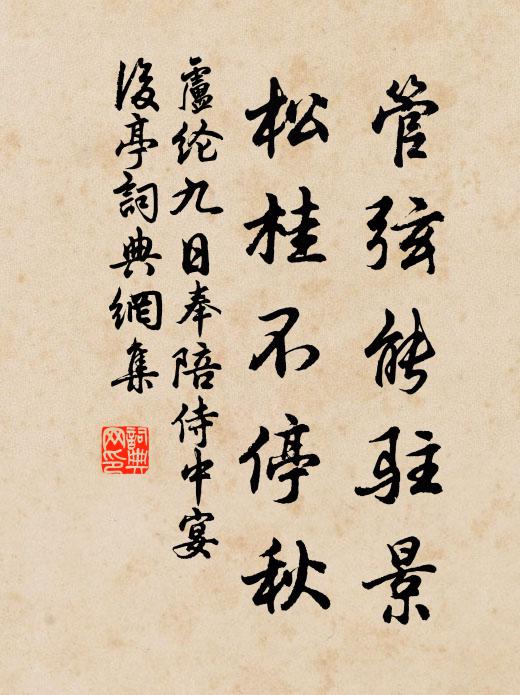 管弦能駐景
松桂不停秋
盧纶九日奉陪侍中宴
後亭詞典網集
詞典网印